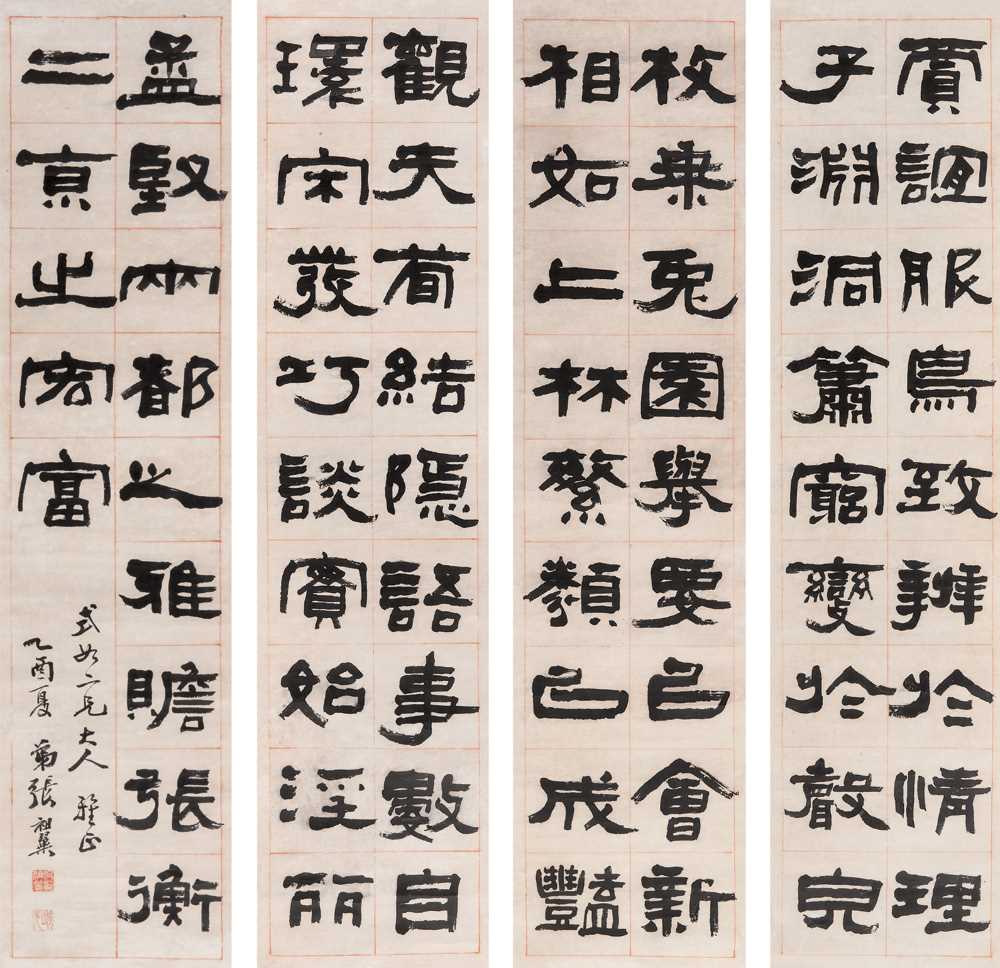 賈誼服鳥致辨於情理
子淵洞簫窮變於聲皃
枚乘兔園舉要㠯會新
相如上林繁類㠯成豔
觀夫荀結隱語事數自
環宋發巧談實始淫丽
孟堅兩都之雅贍張衡
二京之宏富
式如二兄大人 雅正
乙酉夏 弟張祖翼